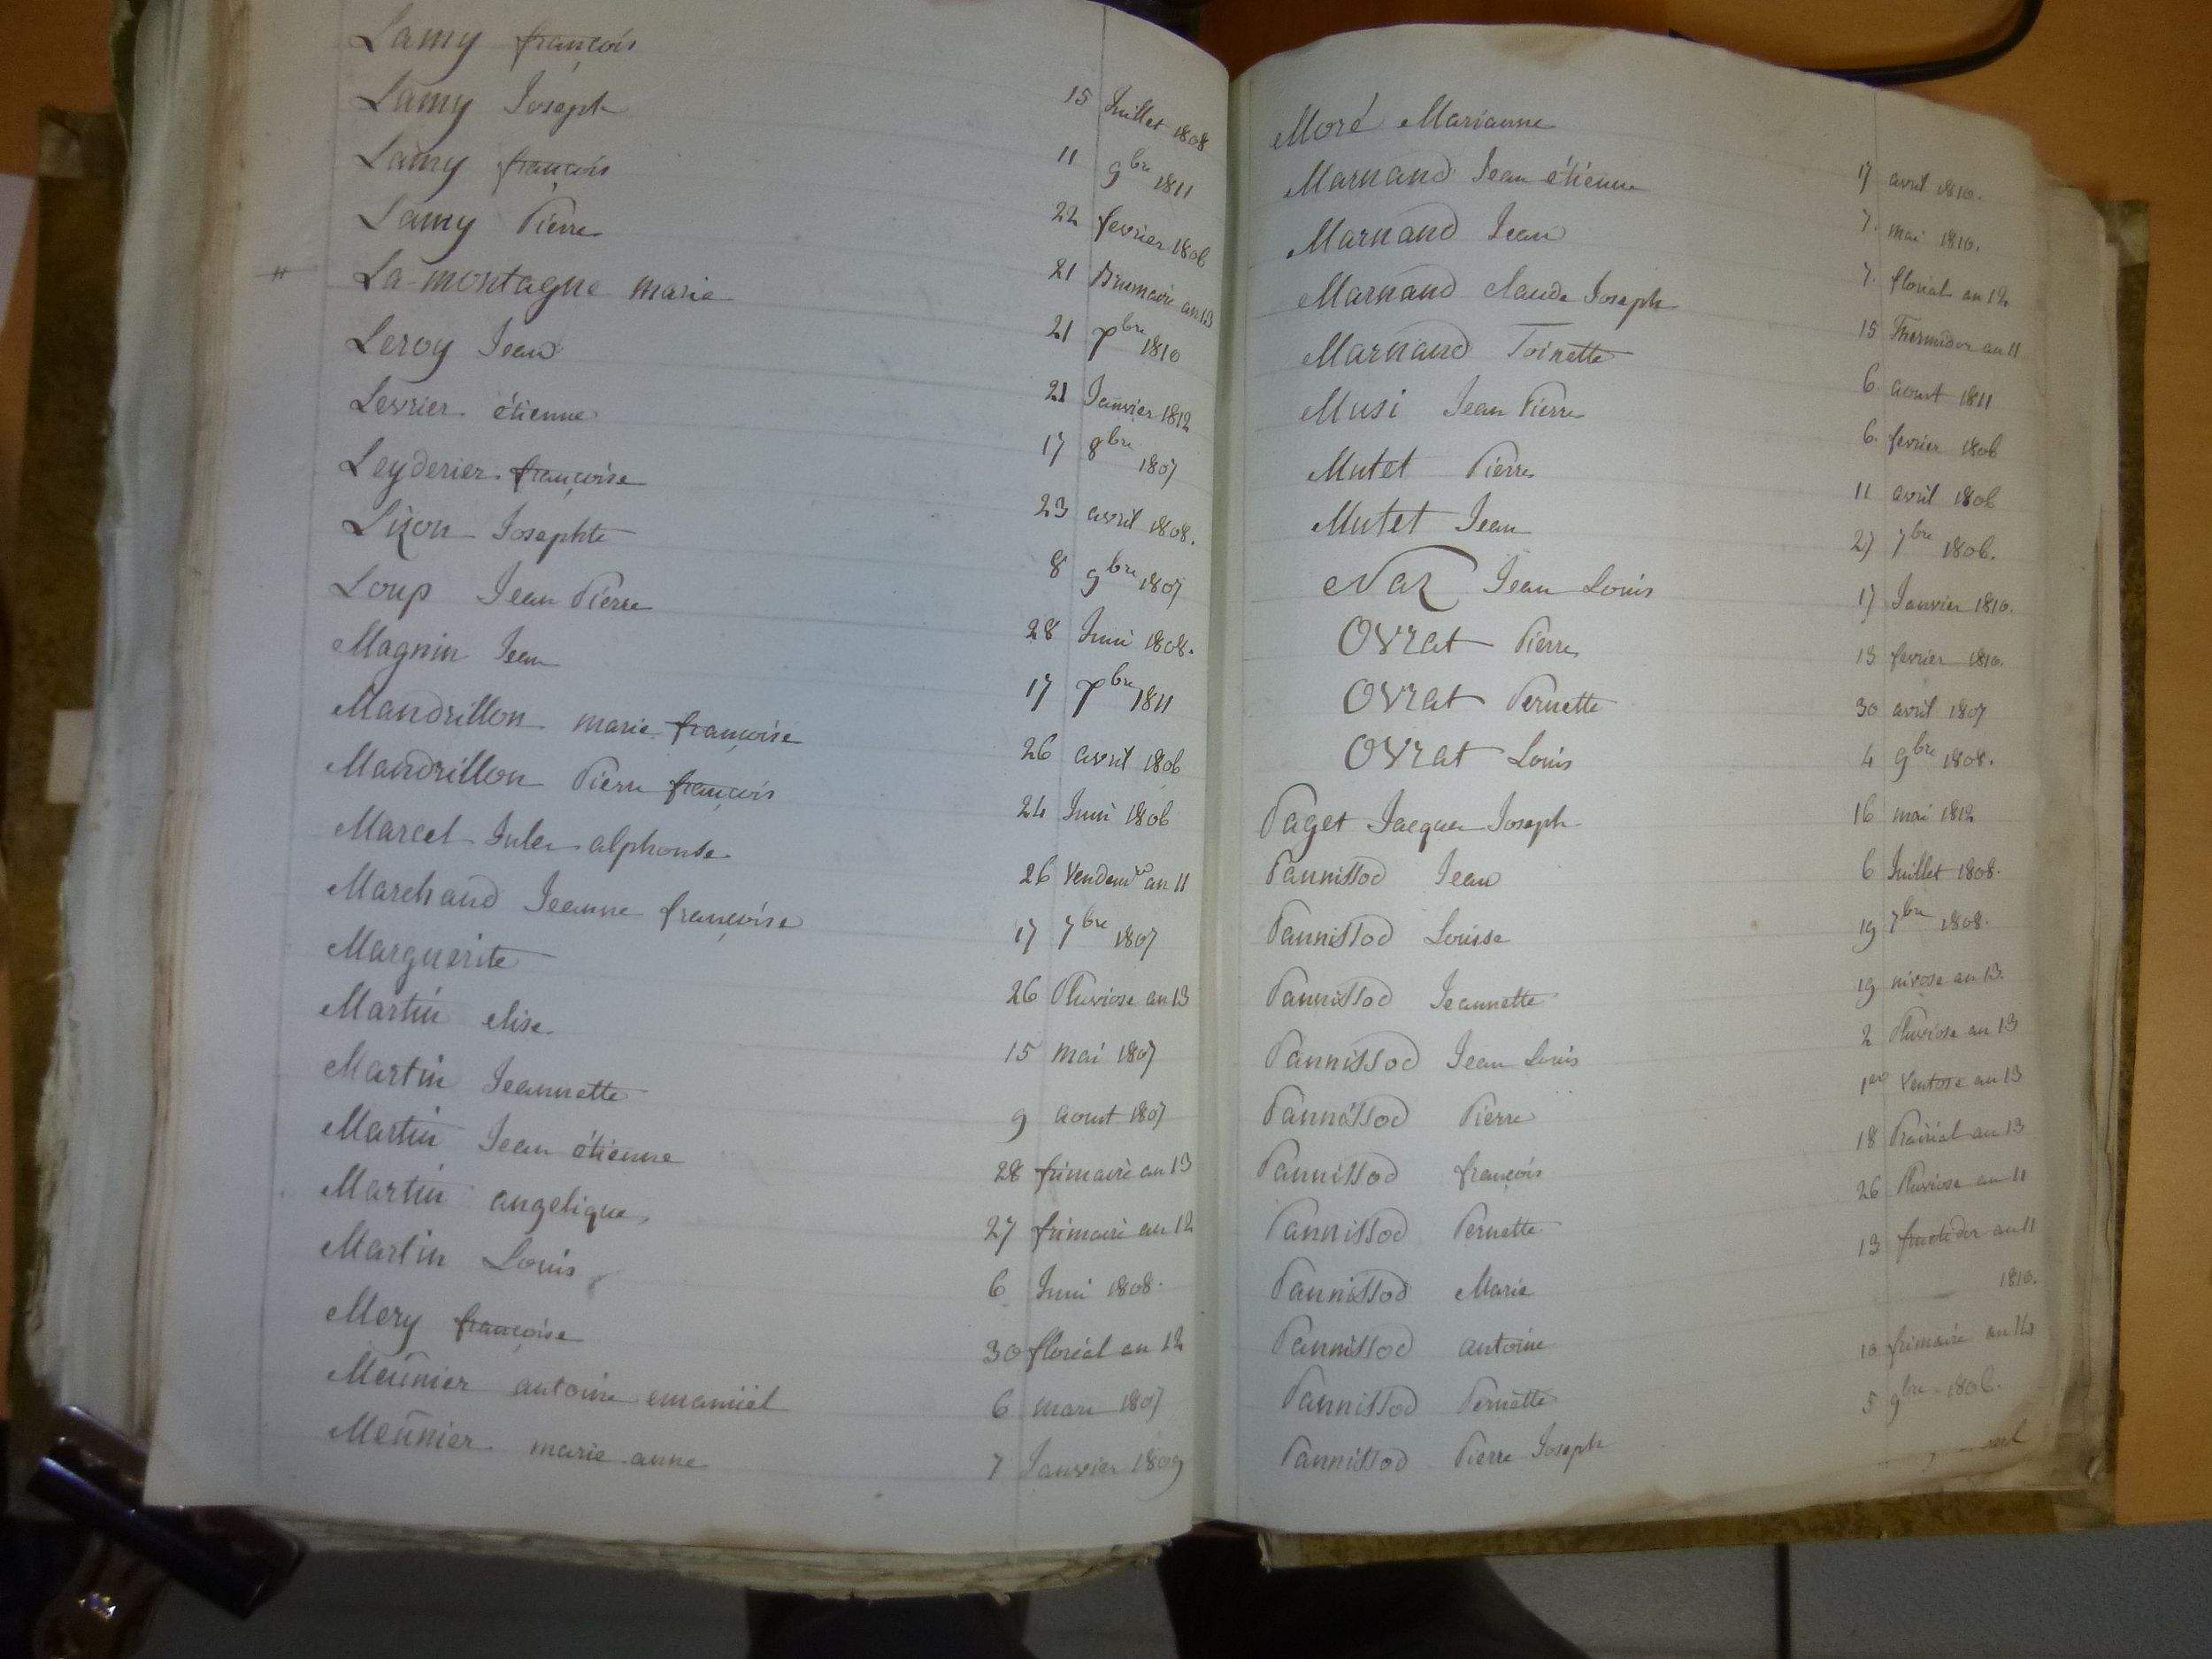 Lamy françois 15 Juillet 1808
Lamy Joseph 11 9bre 1811
Lamy françois 22 fevrier 1806
Lamy Pierre 21 Brumaire an 13
# La montagne marie 21 7bre 1810
Leroy Jean 21 Janvier 1812
Levrier étienne 17 8bre 1807
Leyderier françoise 23 avril 1808.
Lizon Josephte 8 9bre 1807
Loup Jean Pierre 28 Juin 1808.
Magnin Jean 17 7bre 1811
Mandrillon marie françoise 26 avril 1806
Mandrillon Pierre françois 24 Juin 1806
Marcel Jules alphonse 26 Vendemre an 11
Marchand Jeanne françoise 17 7bre 1807
Marguerite 26 Pluviose an 13
Martin elise 15 mai 1807
Martin Jeannette 9 aout 1807
Martin Jean étienne 28 frimaire an 13
Martin angelique 27 frimaire an 12
Martin Louis 6 Juin 1808.
Mery françoise 30 floréal an 12
Meünier antoine emanüel 6 mars 1807
Meünier marie anne 7 Janvier 1809
Moré Marianne 17 avril 1810.
Marnand Jean étienne 7. mai 1810.
Marnand Jean 7. floréal an 12
Marnand claude Joseph 15 Thermidor an 11
Marnand Toinette 6. aout 1811
Musi Jean Pierre 6. fevrier 1806
Mutet Pierre 11 avril 1806
Mutet Jean 27 7bre 1806.
Naz Jean Louis 17 Janvier 1810.
Ovrat Pierre 13 fevrier 1810.
Ovrat Pernette 30 avril 1807
Ovrat Louis 4 9bre 1808.
Paget Jacques Joseph 16 mai 1812
Pannissod Jean 6 Juillet 1808.
Pannissod Louise 19 7bre 1808.
Pannissod Jeannette 19 nivose an 13.
Pannissod Jean Louis 2 Pluviose an 13
Pannissod Pierre 1er Ventose an 13
Pannissod françois 18 Prairial an 13
Pannissod Pernette 26 Pluviose an 11
Pannissod Marie 13 fructidor an 11
Pannissod antoine 1810.
Pannissod Pernette 10 frimaire an 14
Pannissod Pierre Joseph 5 9bre 1806.